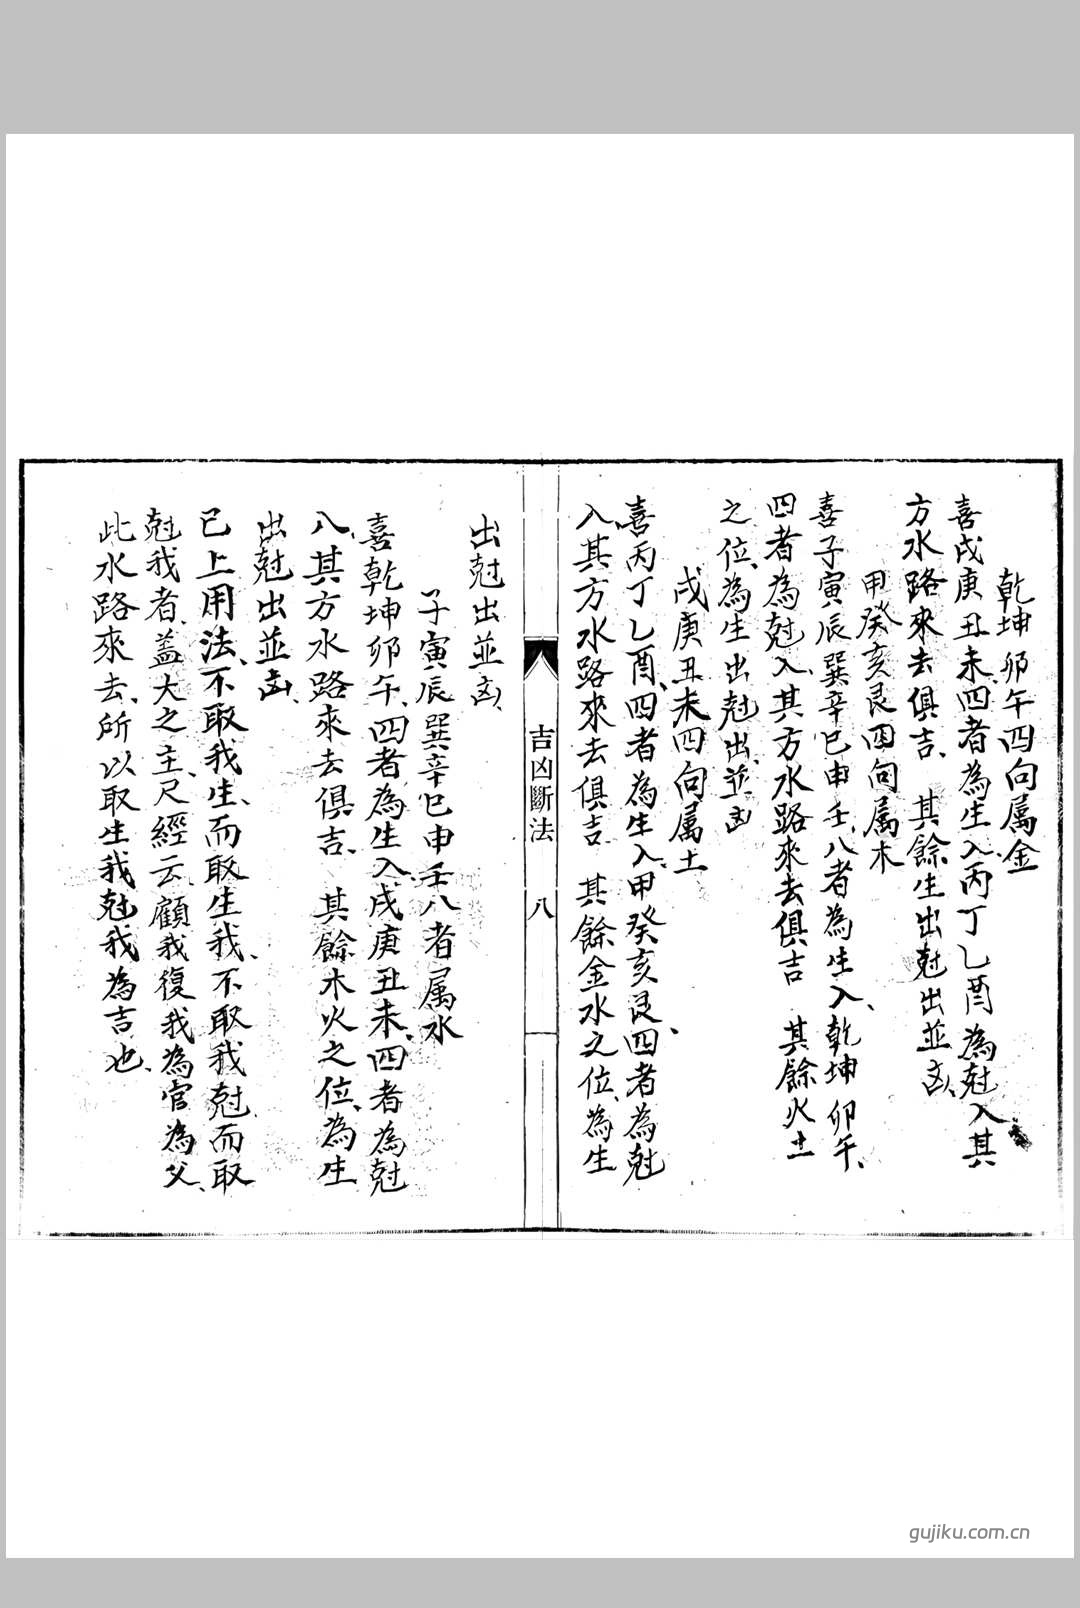 乾坤卯午四向属金
喜戌庚丑未四者為生入丙丁乙酉為尅入其
方水路來去俱吉其餘生出尅出並凶
甲癸亥艮四向属木
喜子寅辰巽辛巳申壬八者為生入乾坤卯午
四者為尅入其方水路來去俱吉其餘火土
之位為生出尅出並凶
戌庚丑未四向属土
喜丙丁乙酉四者為生入甲癸亥艮四者為尅
入其方水路來去俱吉其餘金水之位為生
吉凶斷法 八
出尅出並凶
子寅辰巽辛巳申壬八者属水
喜乾坤卯午四者為生入戌庚丑未四者為尅
入其方水路來去俱吉其餘木火之位為生
出尅出並凶
已上用法不取我生而取生我不取我尅而取
尅我者蓋大之主尺經云顧我復我為官為父
此水路來去所以取生我尅我為吉也
gujiku.com.cn